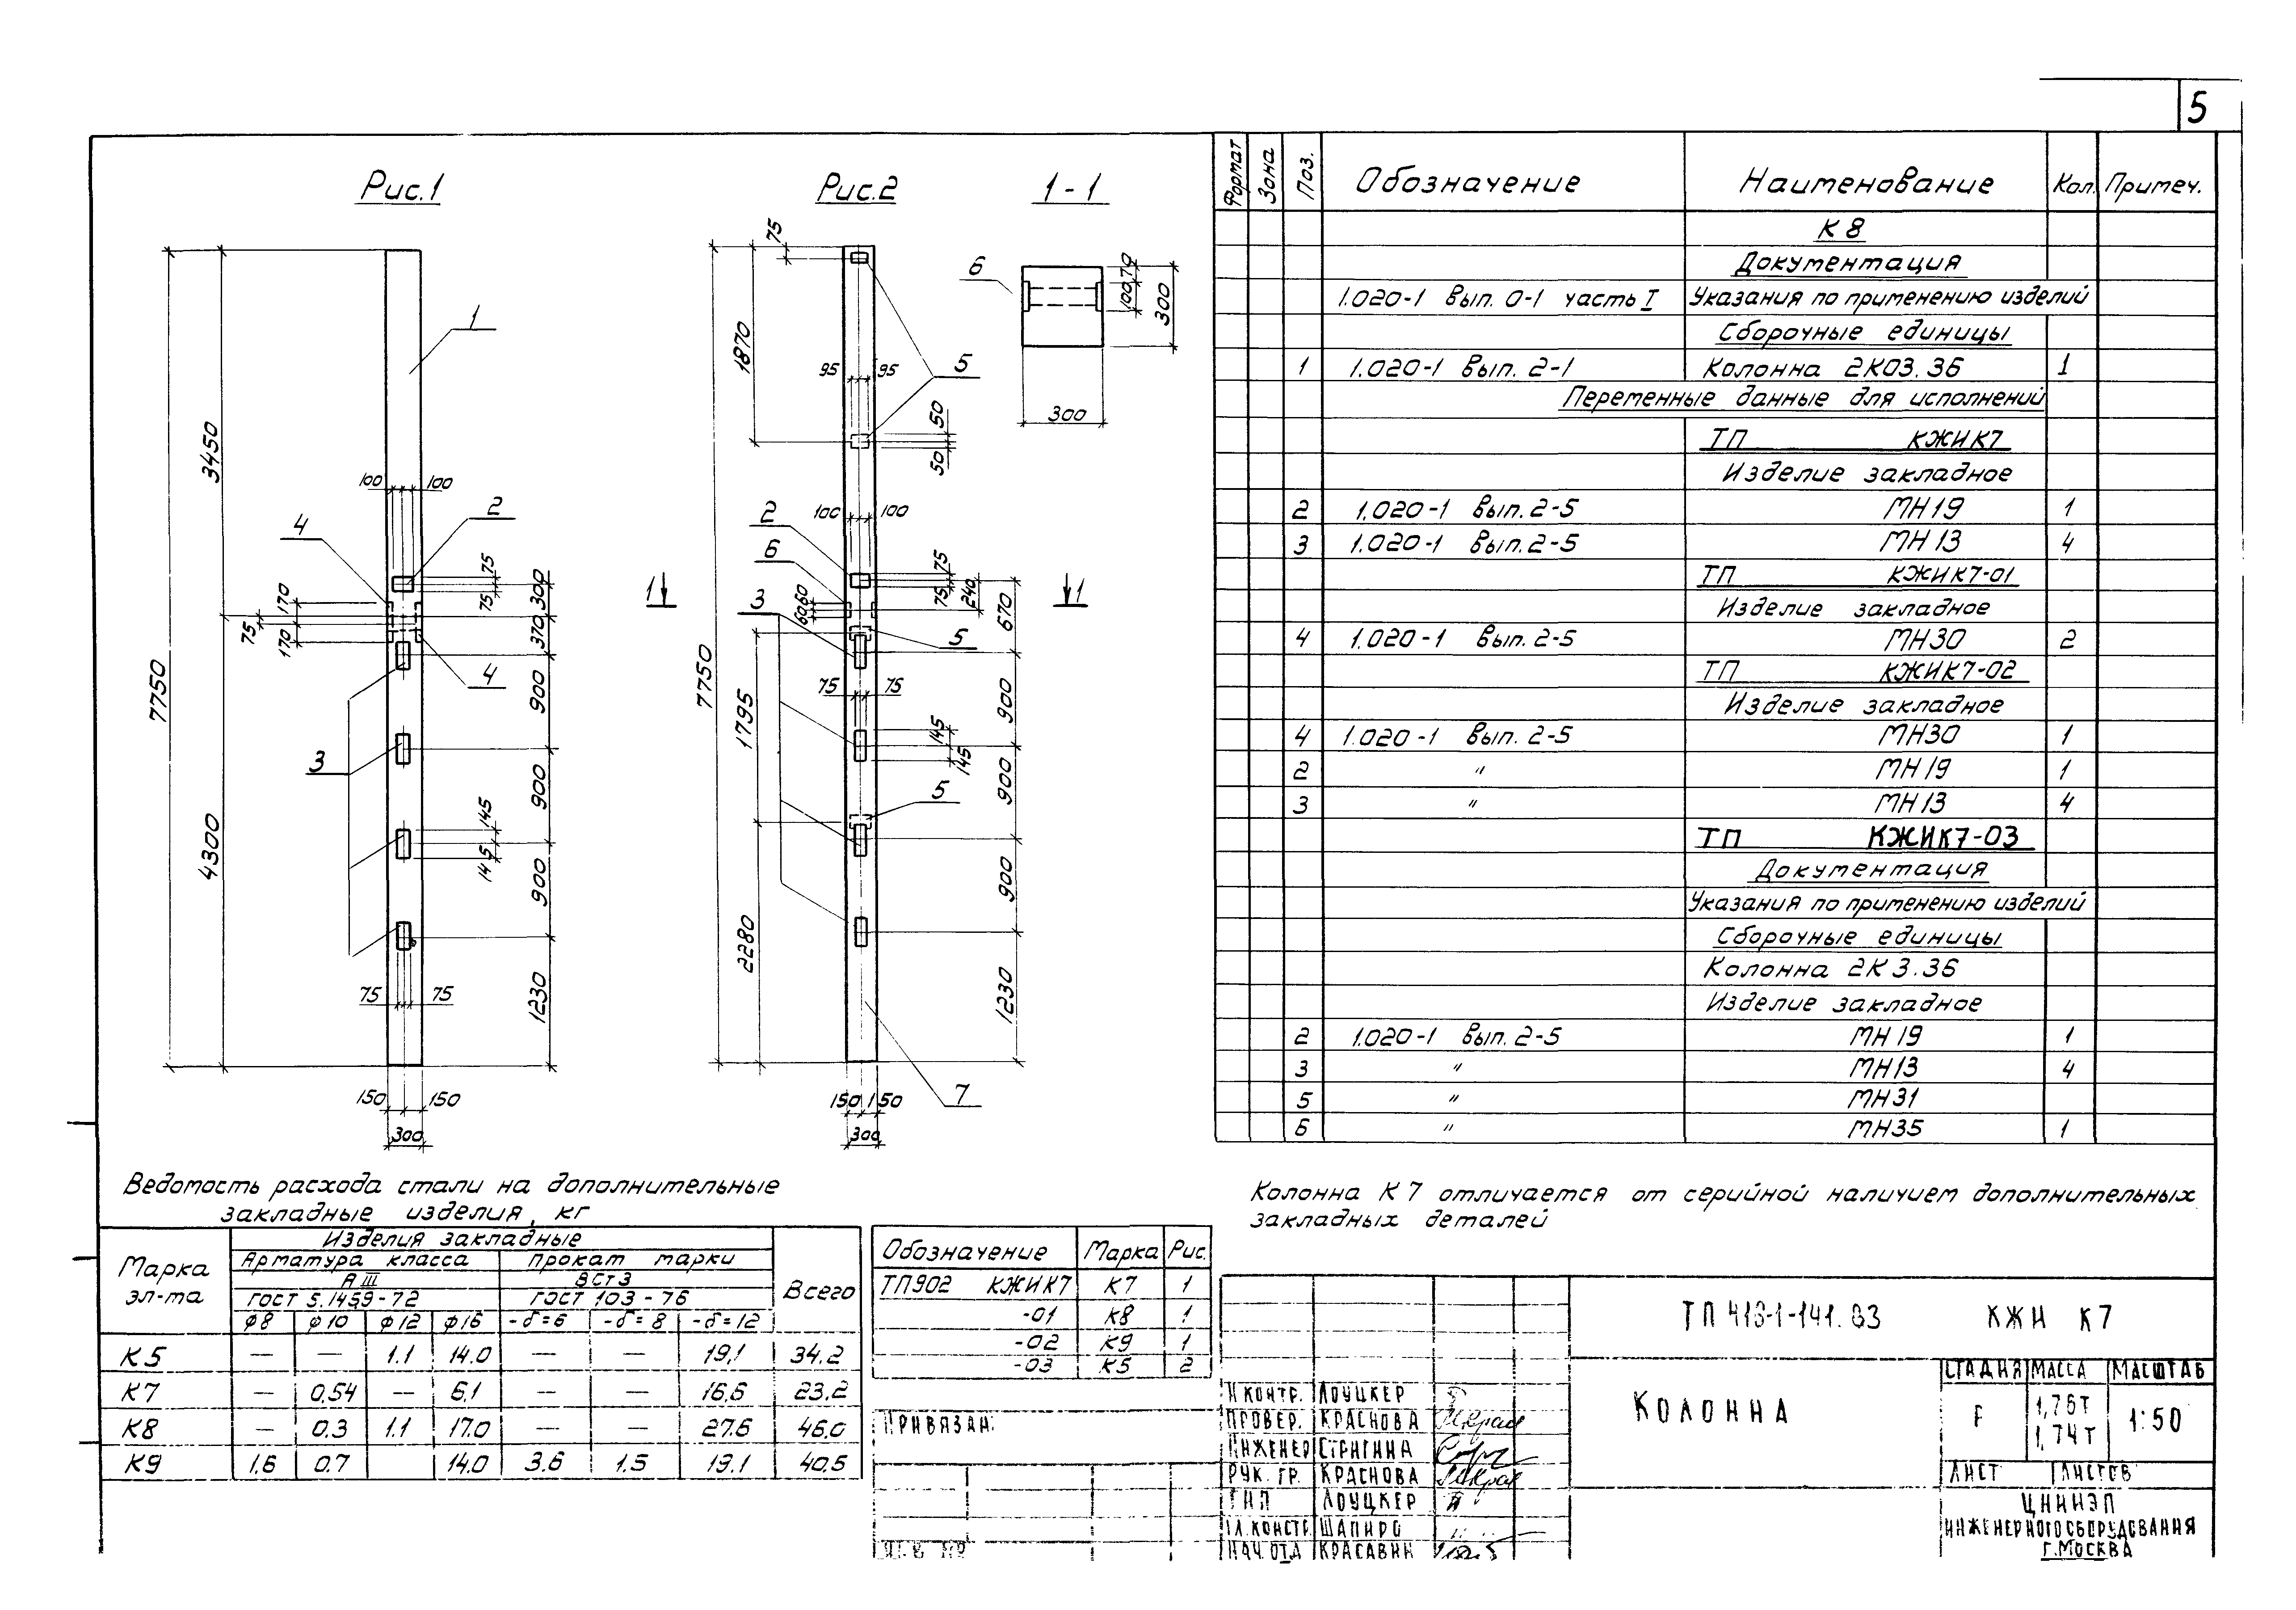 5
Рис.1
7750
3450
4300
1
100 100
2
4
75
75
300
170
75
170
370
4
900
3
900
145
145
900
75 75
1230
150 150
300
Рис.2
75
1870
7750
5
95 95
50
50
2
100 100
6
75
75
240
670
60 60
3
5
1795
75 75
900
145
145
5
900
900
2280
1230
7
150 150
300
1 1
1-1
6
70
100
300
300
Формат Зона Поз. Обозначение Наименование Кол. Примеч.
К8
Документация
1.020-1 Вып. 0-1 часть I Указания по применению изделий
Сборочные единицы
1 1.020-1 Вып. 2-1 Колонна 2К03.36 1
Переменные данные для исполнений
ТП КЖИК7
Изделие закладное
2 1.020-1 Вып. 2-5 МН19 1
3 1.020-1 Вып. 2-5 МН13 4
ТП КЖИК7-01
Изделие закладное
4 1.020-1 Вып. 2-5 МН30 2
ТП КЖИК7-02
Изделие закладное
4 1.020-1 Вып. 2-5 МН30 1
2 " МН19 1
3 " МН13 4
ТП КЖИК7-03
Документация
Указания по применению изделий
Сборочные единицы
Колонна 2К3.36
Изделие закладное
2 1.020-1 Вып. 2-5 МН19 1
3 " МН13 4
5 " МН31
6 " МН35 1
Ведомость расхода стали на дополнительные
закладные изделия, кг
Марка эл-та
Изделия закладные
Арматура класса Прокат марки
АIII ВСт3
ГОСТ 5.1459-72 ГОСТ 103-76
Всего
ф8 ф10 ф12 ф16 -δ=6 -δ=8 -δ=12
К5 — — 1.1 14.0 — — 19,1 34.2
К7 — 0,54 — 6,1 — — 16,6 23,2
К8 — 0.3 1.1 17.0 — — 27.6 46,0
К9 1,6 0.7 14,0 3.6 1.5 19.1 40,5
Обозначение Марка Рис.
ТП902 КЖИК7 К7 1
-01 К8 1
-02 К9 1
-03 К5 2
Привязан:
Колонна К7 отличается от серийной наличием дополнительных
закладных деталей
ТП 416-1-141.83 КЖИ К7
Н КОНТР. ЛОУЦКЕР
ПРОВЕР. КРАСНОВА
ИНЖЕНЕР СТРИГИНА
РУК. ГР. КРАСНОВА
ГИП ЛОУЦКЕР
ГЛ.КОНСТР ШАПИРО
НАЧ.ОТД КРАСАВИН
КОЛОННА
СТАДИЯ МАССА МАСШТАБ
Р 1,76т 1,74т 1:50
ЛИСТ ЛИСТОВ
ЦНИИЭП
ИНЖЕНЕРНОГО ОБОРУДОВАНИЯ
Г.МОСКВА